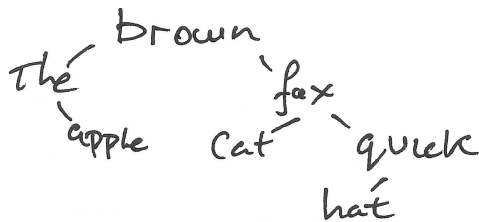 brown
The fox
apple cat quick
hat